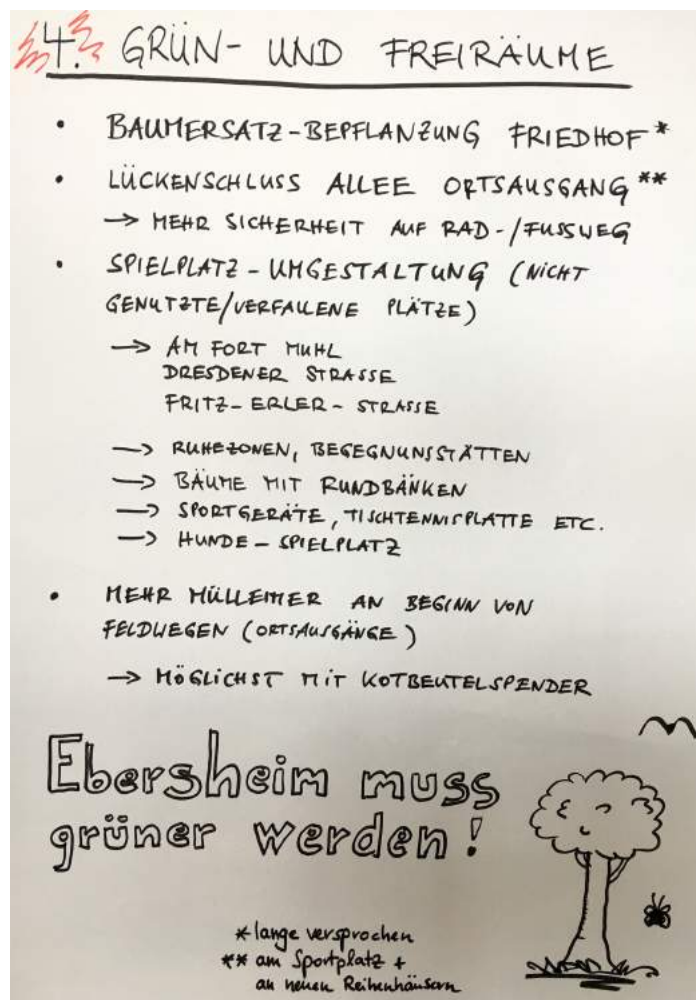 4. GRÜN- UND FREIRÄUME
• BAUMERSATZ-BEPFLANZUNG FRIEDHOF*
• LÜCKENSCHLUSS ALLEE ORTSAUSGANG**
→ MEHR SICHERHEIT AUF RAD-/FUSSWEG
• SPIELPLATZ-UMGESTALTUNG (NICHT
GENUTZTE/VERFALLENE PLÄTZE)
→ AM FORT MUHL
DRESDENER STRASSE
FRITZ-ERLER-STRASSE
→ RUHEZONEN, BEGEGNUNSSTÄTTEN
→ BÄUME MIT RUNDBÄNKEN
→ SPORTGERÄTE, TISCHTENNISPLATTE ETC.
→ HUNDE-SPIELPLATZ
• MEHR MÜLLEIMER AN BEGINN VON
FELDWEGEN (ORTSAUSGÄNGE)
→ MÖGLICHST MIT KOTBEUTELSPENDER
Ebersheim muss
grüner werden!
* lange versprochen
** am Sportplatz +
an neuen Reihenhäusern